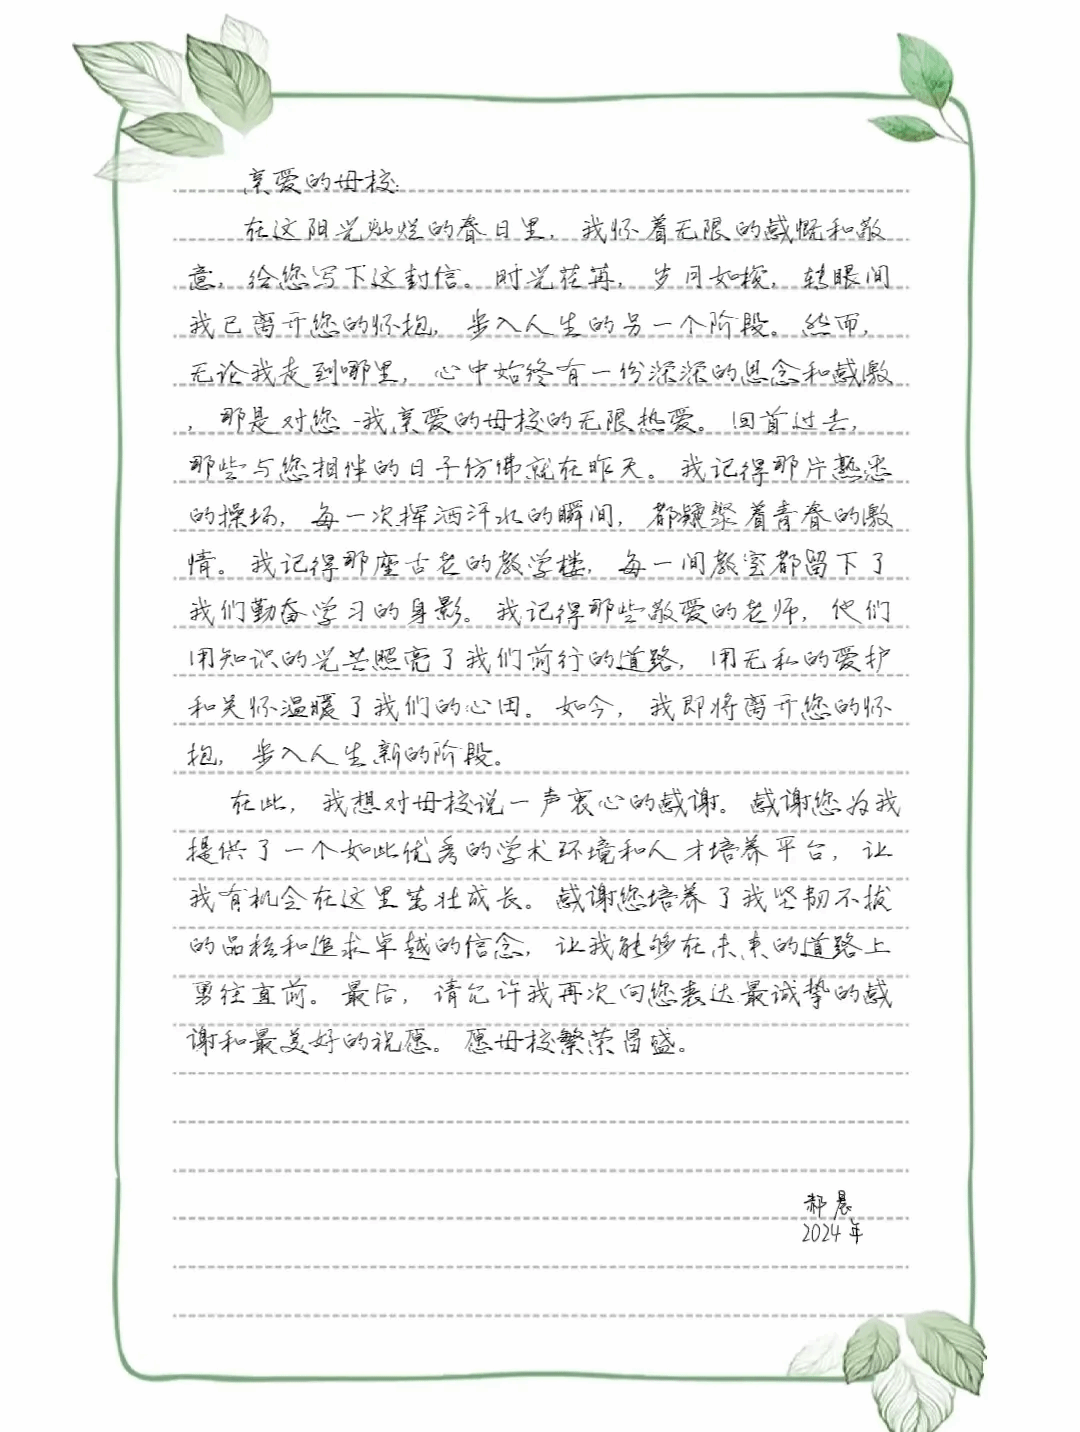 亲爱的母校:
在这阳光灿烂的春日里，我怀着无限的感慨和敬
意，给您写下这封信。时光荏苒，岁月如梭，转眼间
我已离开您的怀抱，步入人生的另一个阶段。然而，
无论我走到哪里，心中始终有一份深深的思念和感激
，那是对您-我亲爱的母校的无限热爱。回首过去，
那些与您相伴的日子仿佛就在昨天。我记得那片熟悉
的操场，每一次挥洒汗水的瞬间，都凝聚着青春的激
情。我记得那座古老的教学楼，每一间教室都留下了
我们勤奋学习的身影。我记得那些敬爱的老师，他们
用知识的光芒照亮了我们前行的道路，用无私的爱护
和关怀温暖了我们的心田。如今，我即将离开您的怀
抱，步入人生新的阶段。
在此，我想对母校说一声衷心的感谢。感谢您为我
提供了一个如此优秀的学术环境和人才培养平台，让
我有机会在这里茁壮成长。感谢您培养了我坚韧不拔
的品格和追求卓越的信念，让我能够在未来的道路上
勇往直前。最后，请允许我再次向您表达最诚挚的感
谢和最美好的祝愿。愿母校繁荣昌盛。
郝晨
2024年